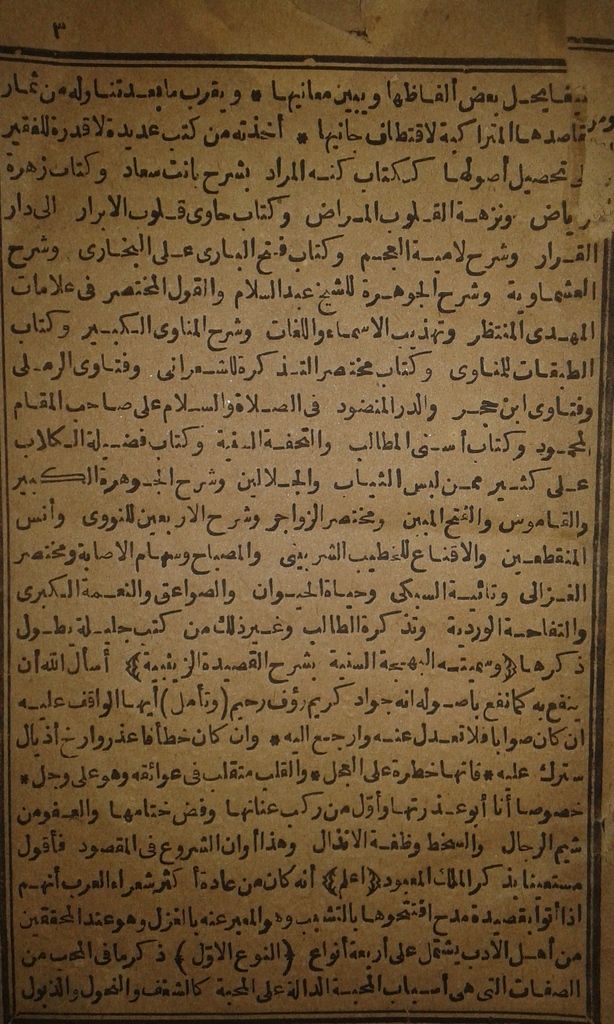 ٣
يحل بعض ألفاظها ويبين معانيها * ويقرب ما بعد تناوله من ثمار
مقاصدها المتراكبة لاقتطاف جانيها * أخذته من كتب عديدة لا قدرة للفقير
تحصيل أصولها ككتاب كنه المراد بشرح بانت سعاد وكتاب زهرة
رياض ونزهة القلوب المراض وكتاب حاوى قلوب الابرار الى دار
القرار وشرح لامية العجم وكتاب فتح البارى على البخارى وشرح
العشماوية وشرح الجوهرة للشيخ عبد السلام والقول المختصر فى علامات
المهدى المنتظر وتهذيب الاسماء واللغات وشرح المناوى الكبير وكتاب
الطبقات للمناوى وكتاب مختصر التذكرة للشعرانى وفتاوى الرملى
وفتاوى ابن حجر والدر المنضود فى الصلاة والسلام على صاحب المقام
المحمود وكتاب أسنى المطالب والتحفة وكتاب فضيلة الكلاب
على كثير ممن لبس الثياب والجلالين وشرح الجوهرة الكبير
والقاموس والفتح المبين ومختصر الزواجر وشرح الاربعين للنووى وأنس
المنقطعين والاقناع للخطيب الشربينى والمصباح وسهام الاصابة ومختصر
الغزالى وتائية السبكى وحياة الحيوان والصواعق والنعمة الكبرى
والتفاحة الوردية وتذكرة الطالب وغير ذلك من كتب جليلة يطول
ذكرها (وسميته البهجة السنية بشرح القصيدة الزينبية) أسأل الله أن
ينفع به كما نفع بأصوله انه جواد كريم رؤف رحيم (وتأمل) أيها الواقف عليه
ان كان صوابا فلا تعدل عنه وارجع اليه * وان كان خطأ فاعذر وارخ أذيال
سترك عليه * فانها خطرة على العجل * والقلب متقلب فى عوائقه وهو على وجل *
خصوصا أنا أبو عذرتها وأول من ركب عنانها وفض ختامها والعفو من
شيم الرجال والسخط وظفة الانذال وهذا أوان الشروع فى المقصود فأقول
مستعينا بذكر الملك المعبود (اعلم) أنه كان من عادة أكثر شعراء العرب أنهم
اذا أتوا بقصيدة مدح افتتحوها بالتشبيب وهو المعبر عنه بالغزل وهو عند المحققين
من أهل الادب يشتمل على أربعة أنواع (النوع الاول) ذكر ما فى المحب من
الصفات التى هى أسباب المحبة الدالة على المحبة كالشغف والنحول والذبول